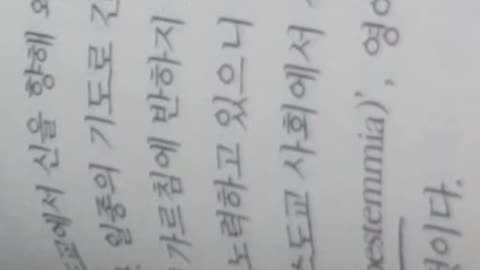 교에서 신을 향해
일종의 기도로
가르침에 반하지
노력하고 있으니
도교 사회에서
estemmia)’, 영
이다.